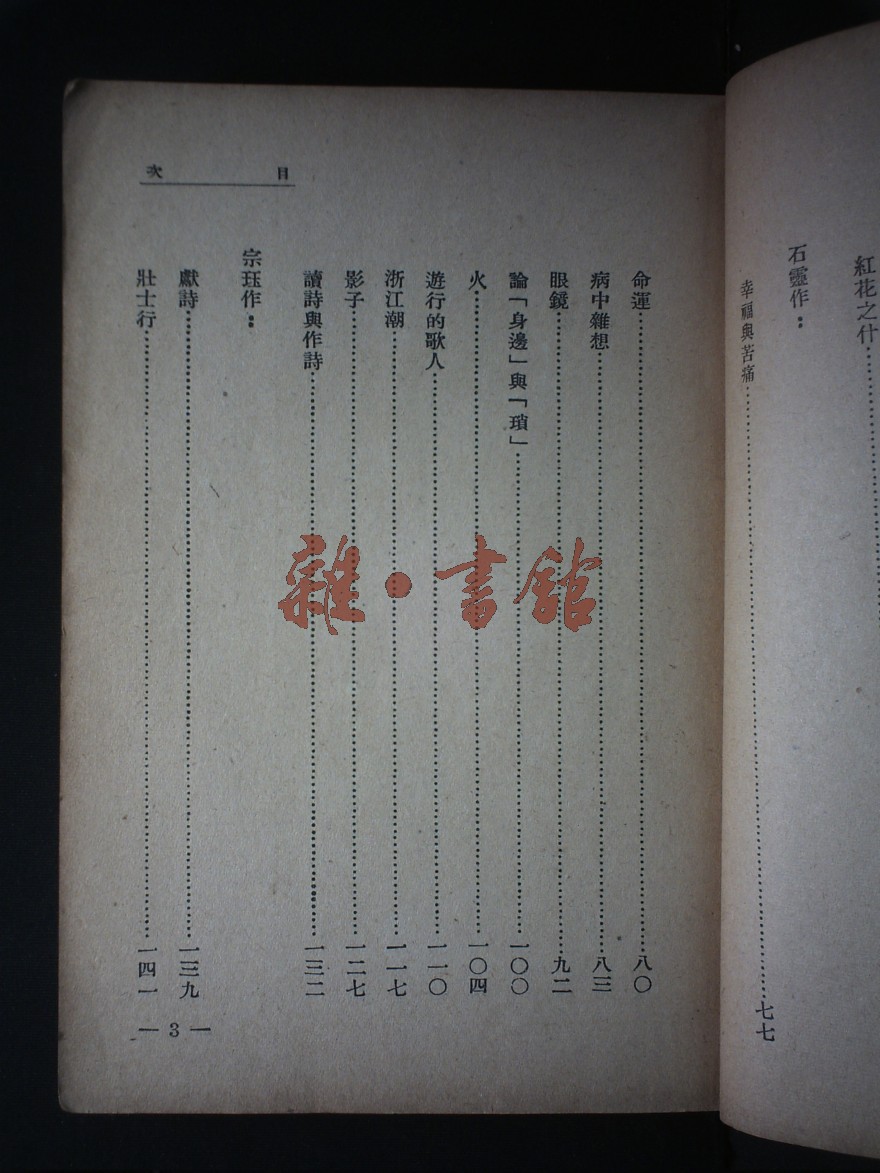 紅花之什
石靈作：
幸福與苦痛……七七
目次
命運……八〇
病中雜想……八三
眼鏡……九二
論「身邊」與「瑣」……一〇〇
火……一〇四
遊行的歌人……一一〇
浙江潮……一一七
影子……一二七
讀詩與作詩……一三二
宗珏作：
獻詩……一三九
壯士行……一四一
— 3 —
雜·書館